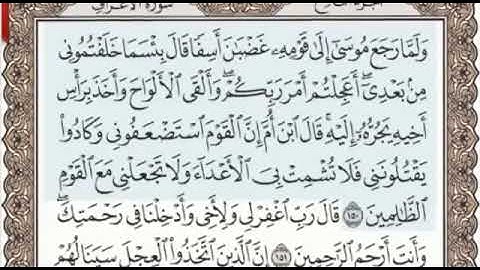 سورة الأعراف
وَلَمَّا رَجَعَ مُوسَىٰٓ إِلَىٰ قَوْمِهِۦ غَضْبَٰنَ أَسِفًا قَالَ بِئْسَمَا خَلَفْتُمُونِي
مِنۢ بَعْدِيٓۖ أَعَجِلْتُمْ أَمْرَ رَبِّكُمْۖ وَأَلْقَى ٱلْأَلْوَاحَ وَأَخَذَ بِرَأْسِ
أَخِيهِ يَجُرُّهُۥٓ إِلَيْهِۚ قَالَ ٱبْنَ أُمَّ إِنَّ ٱلْقَوْمَ ٱسْتَضْعَفُونِي وَكَادُوا۟
يَقْتُلُونَنِي فَلَا تُشْمِتْ بِيَ ٱلْأَعْدَآءَ وَلَا تَجْعَلْنِي مَعَ ٱلْقَوْمِ
ٱلظَّٰلِمِينَ ١٥٠ قَالَ رَبِّ ٱغْفِرْ لِي وَلِأَخِي وَأَدْخِلْنَا فِي رَحْمَتِكَۖ
وَأَنتَ أَرْحَمُ ٱلرَّٰحِمِينَ ١٥١ إِنَّ ٱلَّذِينَ ٱتَّخَذُوا۟ ٱلْعِجْلَ سَيَنَالُهُمْ